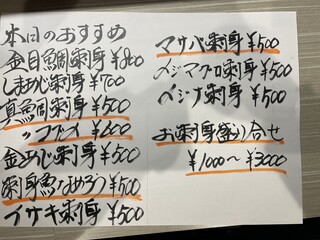 本日のおすすめ
金目鯛刺身 ¥800
しまあじ刺身 ¥700
真鯛刺身 ¥500
〃コブメ ¥600
金あじ刺身 ¥500
刺身魚なめろう ¥500
イサキ刺身 ¥500
マサバ刺身 ¥500
メジマグロ刺身 ¥500
メジナ刺身 ¥500
お刺身盛り合せ
¥1000～¥3000